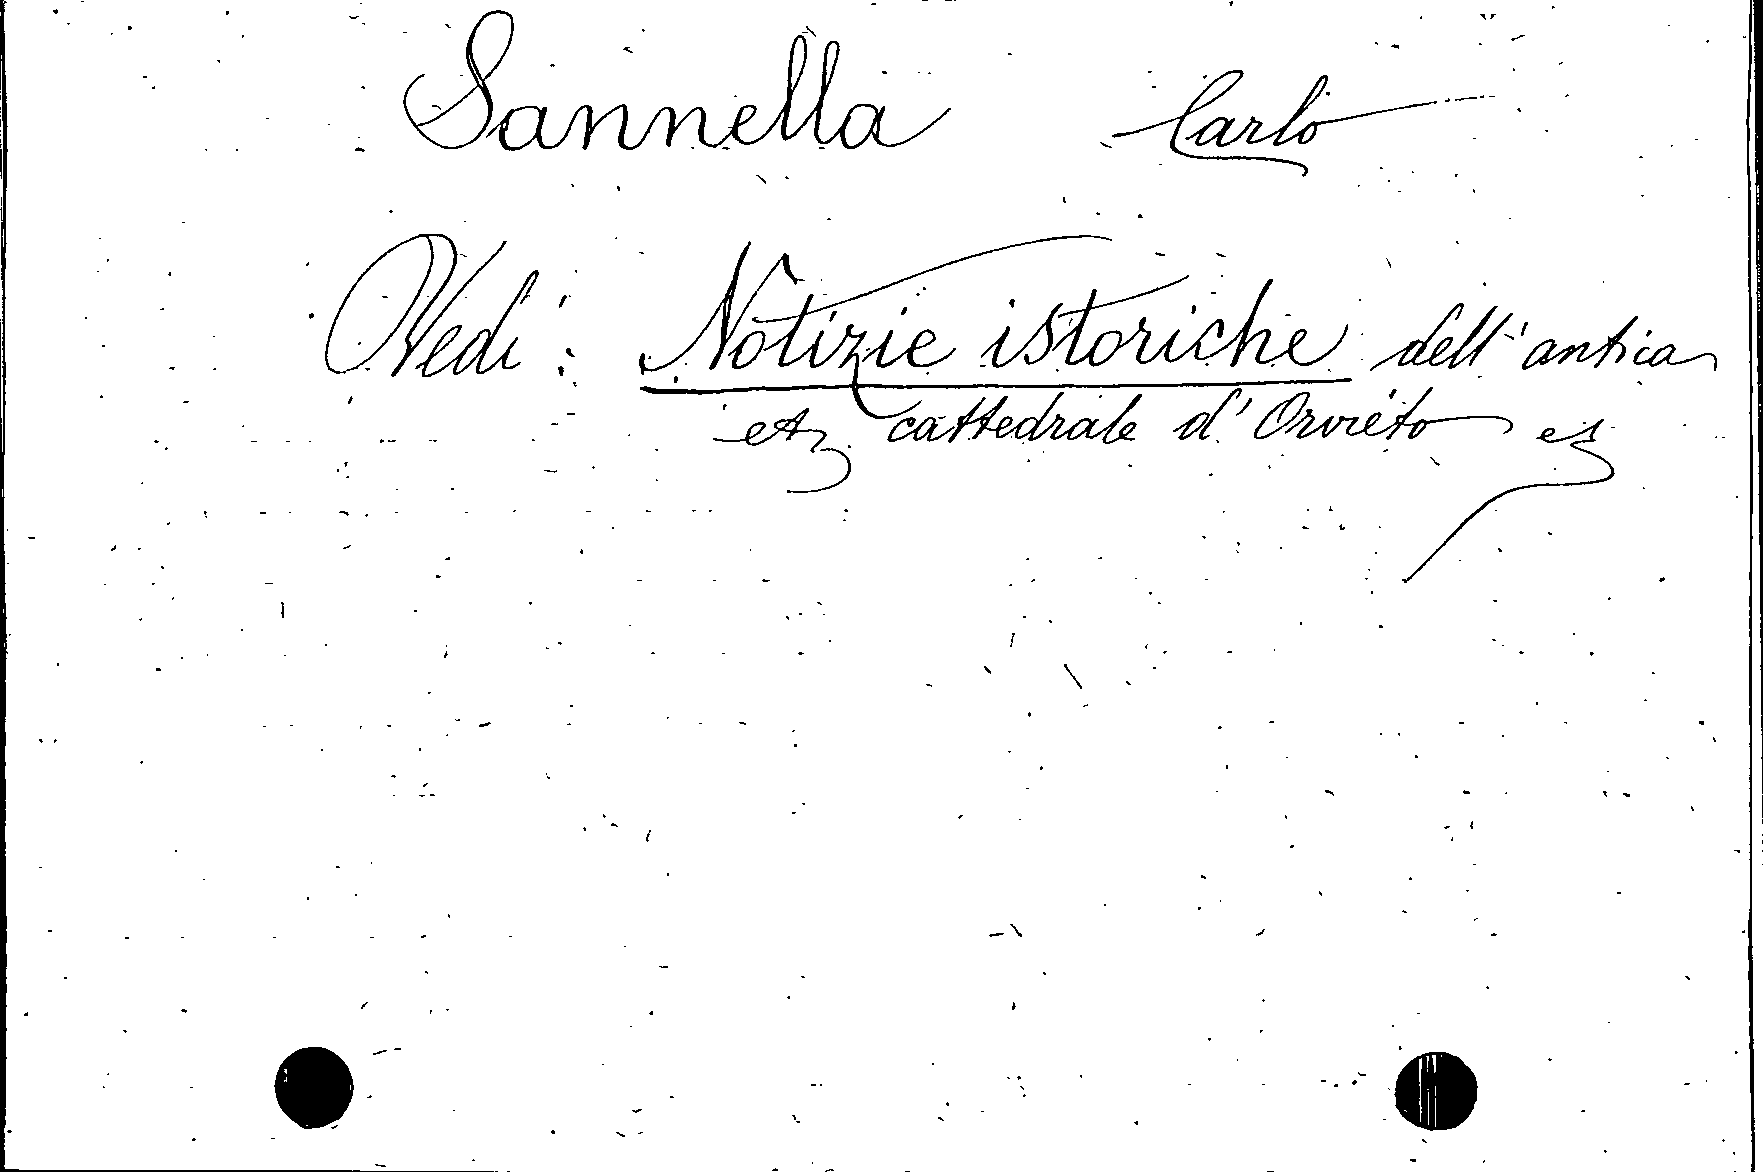 Sannella Carlo
Vedi: Notizie istoriche dell'antica
cattedrale d'Orvieto